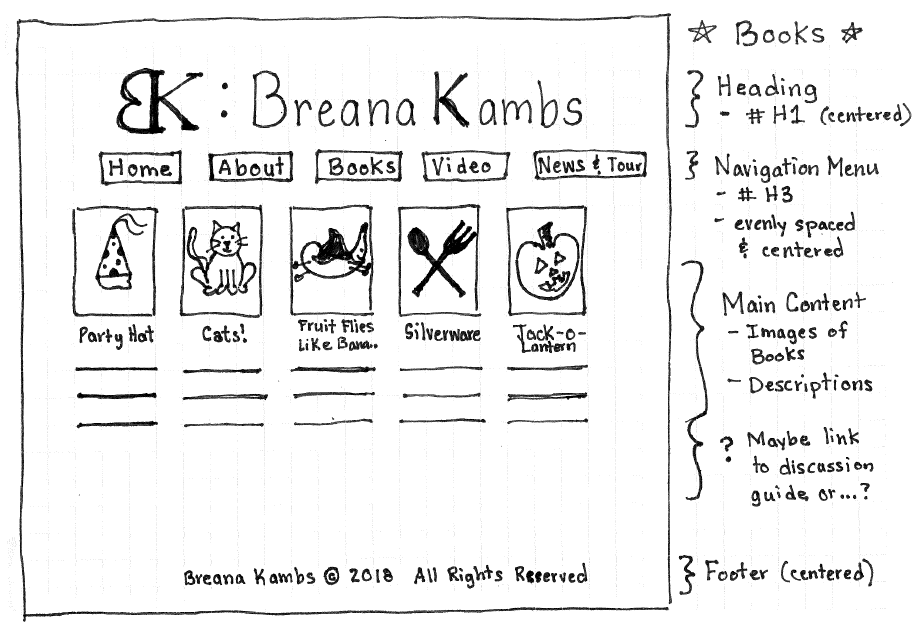 BK : Breana Kambs
Home About Books Video News & Tour
Party Hat
Cats!
Fruit Flies
Like Bana..
Silverware
Jack-o-
Lantern
Breana Kambs © 2018 All Rights Reserved
☆ Books ☆
Heading
- # H1 (centered)
Navigation Menu
- # H3
- evenly spaced
& centered
Main Content
- Images of
Books
- Descriptions
? Maybe link
to discussion
guide, or...?
Footer (centered)